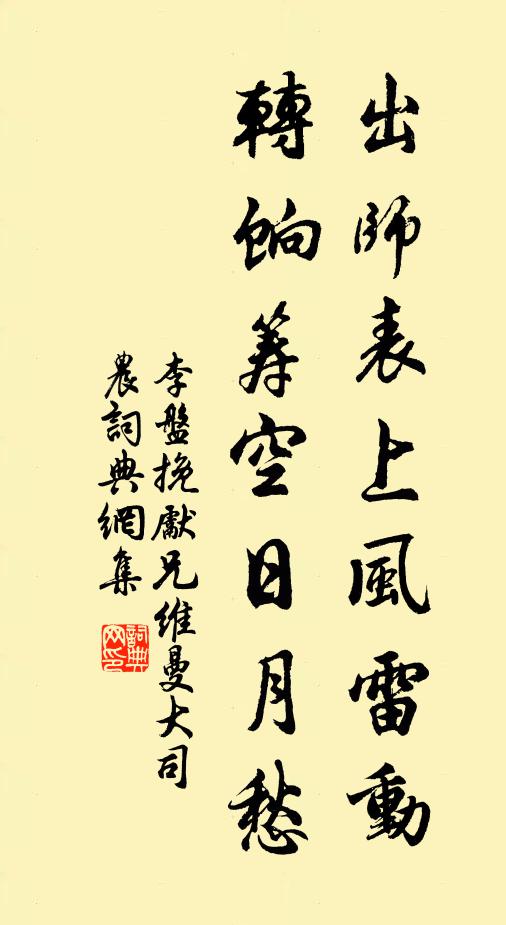 出師表上風雷動
轉餉籌空日月愁
李盤挽獻兄維曼大司
農詞典網集
詞典
网印